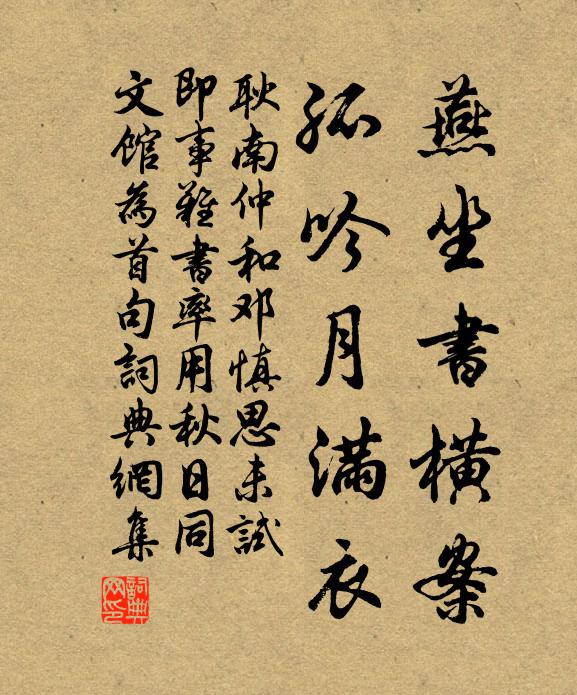 燕坐書橫案
孤吟月滿衣
耿南仲和邓慎思未試
即事雜書率用秋日同
文館為首句詞典網集
詞典
网印